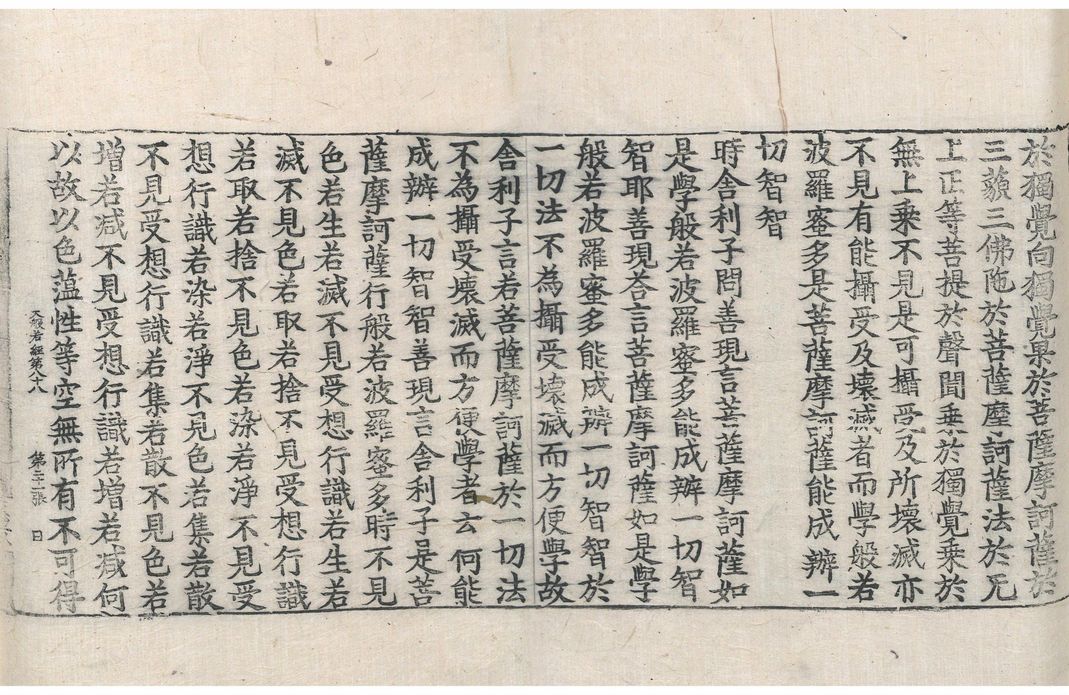 於獨覺向獨覺果於菩薩摩訶薩於
三藐三佛陁於菩薩摩訶薩法於无
上正等菩提於聲聞乗於獨覺乗於
無上乗不見是可攝受及所壞滅亦
不見有能攝受及壞滅者而學般若
波羅蜜多是菩薩摩訶薩能成辦一
切智智
時舍利子問善現言菩薩摩訶薩如
是學般若波羅蜜多能成辦一切智
智耶善現荅言菩薩摩訶薩如是學
般若波羅蜜多能成辦一切智智於
一切法不為攝受壞滅而方便學故
舍利子言若菩薩摩訶薩於一切法
不為攝受壞滅而方便學者云何能
成辦一切智智善現言舍利子是菩
薩摩訶薩行般若波羅蜜多時不見
色若生若滅不見受想行識若生若
滅不見色若取若捨不見受想行識
若取若捨不見色若染若淨不見受
想行識若染若淨不見色若集若散
不見受想行識若集若散不見色若
增若減不見受想行識若增若減何
大般若經第八十八 第二十張 日
以故以色蘊性等空無所有不可得